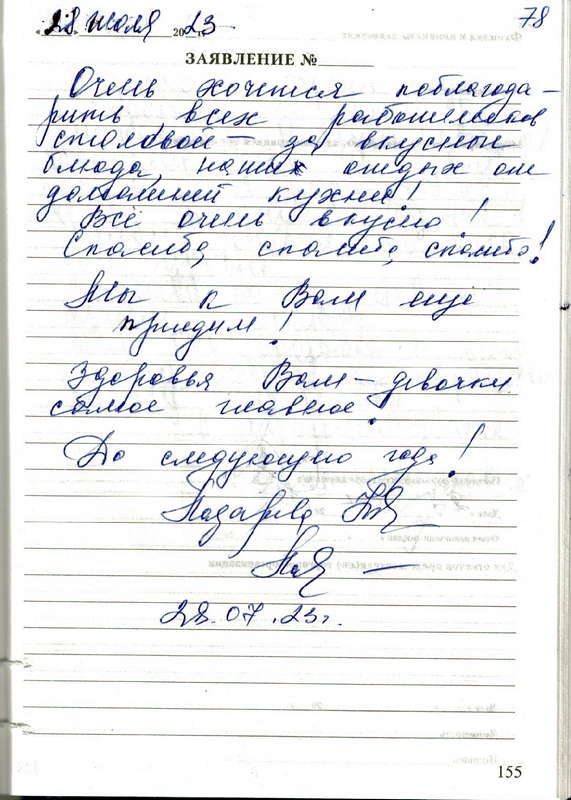 78
«28» июля 2023 г.
ЗАЯВЛЕНИЕ №
Очень хочется поблагода-
рить всех работников
столовой — за вкусные
блюда, наших отдых от
домашней кухни!
Всё очень вкусно!
Спасибо, спасибо, спасибо!
Мы к Вам еще
приедим!
Здоровья Вам — девочки
самое главное!
До следующего года!
28.07.23г.
155